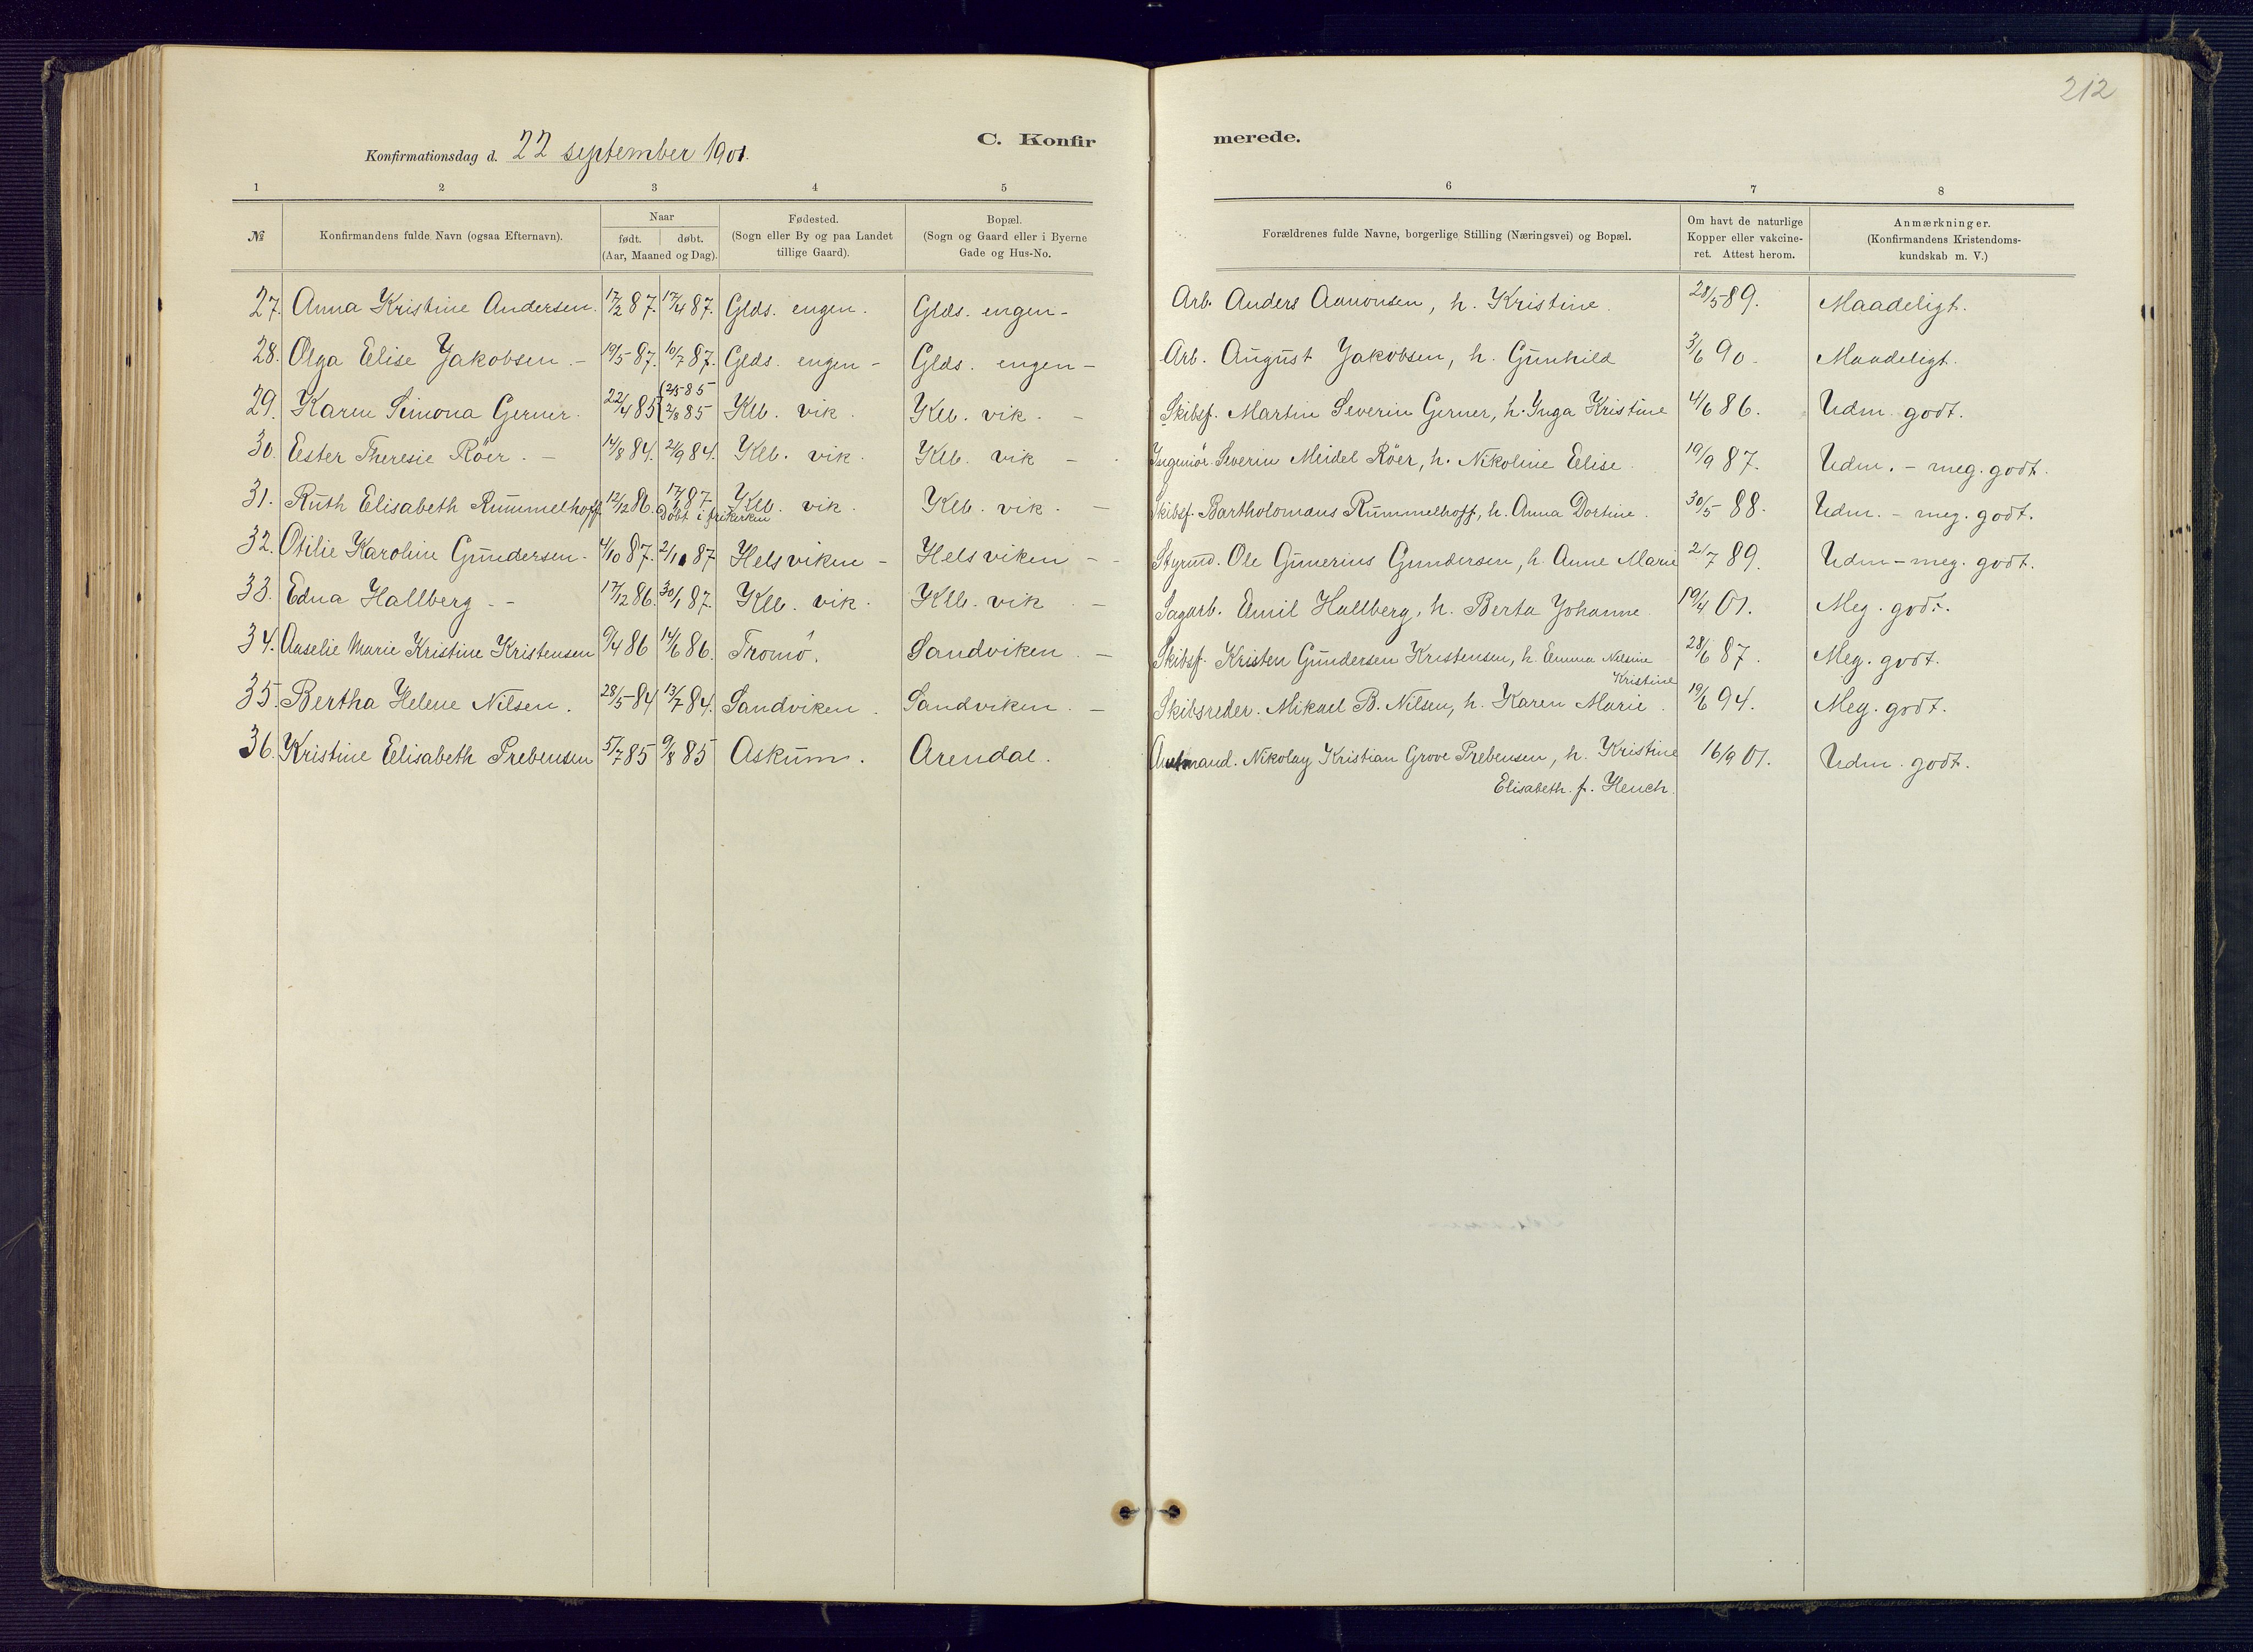 212
C. Konfir merede.
Konfirmationsdag d. 22 september 1901.
1 2 3 4 5 6 7 8
№ Konfirmandens fulde Navn (ogsaa Efternavn). Naar født. døbt. (Aar, Maaned og Dag). Fødested. (Sogn eller By og paa Landet tillige Gaard). Bopæl. (Sogn og Gaard eller i Byerne Gade og Hus-No. Forældrenes fulde Navne, borgerlige Stilling (Næringsvei) og Bopæl. Om havt de naturlige Kopper eller vakcineret. Attest herom. Anmærkninger. (Konfirmandens Kristendomskundskab m. V.)
27. Anna Kristine Andersen. 17/2 87. 17/4 87. Glds. engen. Glds. engen - Arb. Anders Aanonsen, h. Kristine. 28/5 89. Maadeligt.
28. Olga Elise Jakobsen. - 19/5 87. 10/7 87. Glds. engen - Glds. engen - Arb. August Jakobsen, h. Gunhild 3/6 90. Maadeligt.
29. Karen Simona Gerner. 22/4 85 (2/5 85 2/8 85 Klb. vik. Klb. vik. - Skibsf. Martin Severin Gerner, h. Inga Kristine 4/6 86. Udm. godt.
30. Ester Theresie Röer. - 14/8 84. 21/9 84. Klb. vik. Klb. vik - Ingeniör. Severin Meidel Röer, h. Nikoline Elise. 19/9 87. Udm. - meg. godt.
31. Ruth Elisabeth Rummelhoff 12/12 86. 17/4 87. Klb. vik. Klb. vik. - Skibsf. Bartholomæus Rummelhoff, h. Anna Dortine. 30/5 88. Udm. - meg. godt.
Döbt i frikirken
32. Otilie Karoline Gundersen. 4/10 87. 2/10 87 Helsviken - Helsviken - Styrmd. Ole Gunerius Gundersen, h. Anne Marie 21/7 89. Udm - meg. godt.
33. Edna Hallberg - - 17/12 86. 30/1 87. Klb. vik. Klb. vik. - Sagarb. Emil Hallberg, h. Berta Johanne. 19/4 01. Meg. godt.
34. Aaselie Marie Kristine Kristensen 9/4 86 14/6 86. Tromö. Sandviken. - Skibsf. Kristen Gundersen Kristensen, h. Emma Nilsine 28/6 87. Meg. godt.
Kristine
35. Bertha Helene Nilsen. 28/5 84 13/7 84. Sandviken. Sandviken. - Skibsreder. Mikael B. Nilsen, h. Karen Marie. 19/6 94. Meg. godt.
36. Kristine Elisabeth Prebensen 5/7 85 9/8 85 Askum. Arendal. Amtmand. Nikolay Kristian Grove Prebensen, h. Kristine 16/9 01. Udm. godt.
Elisabeth. f. Heuch.